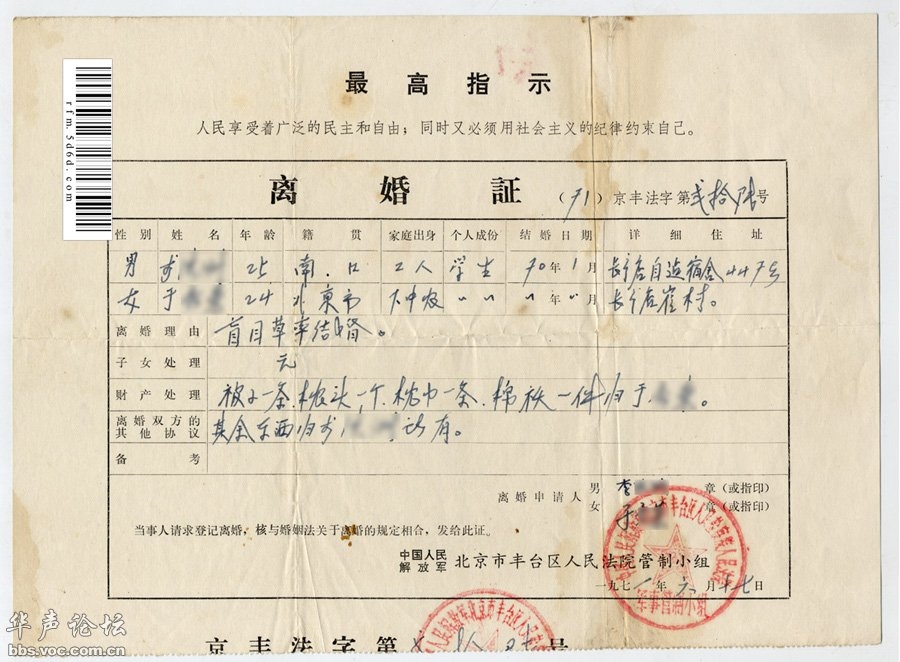 最高指示
人民享受着广泛的民主和自由；同时又必须用社会主义的纪律约束自己。
rfm.5d6d.com
离婚証
（71）京丰法字第贰拾陆号
性别 姓名 年龄 籍贯 家庭出身 个人成份 结婚日期 详细住址
男 李 25 南口 工人 学生 70年1月 长辛店自造宿舍447号
女 于 24 北京市 下中农 〃 〃 〃年〃月 长辛店崔村。
离婚理由 盲目草率结婚。
子女处理 无
财产处理 被子一条、枕头一个、枕巾一条、棉袄一件归于。
离婚双方的其他协议 其余东西归李所有。
备考
离婚申请人 男 李 章（或指印）
女 于 章（或指印）
当事人请求登记离婚，核与婚姻法关于离婚的规定相合，发给此证。
中国人民解放军 北京市丰台区人民法院管制小组
一九七一年六月十七日
军事管制小组
京丰法字第 号
华声论坛
bbs.voc.com.cn